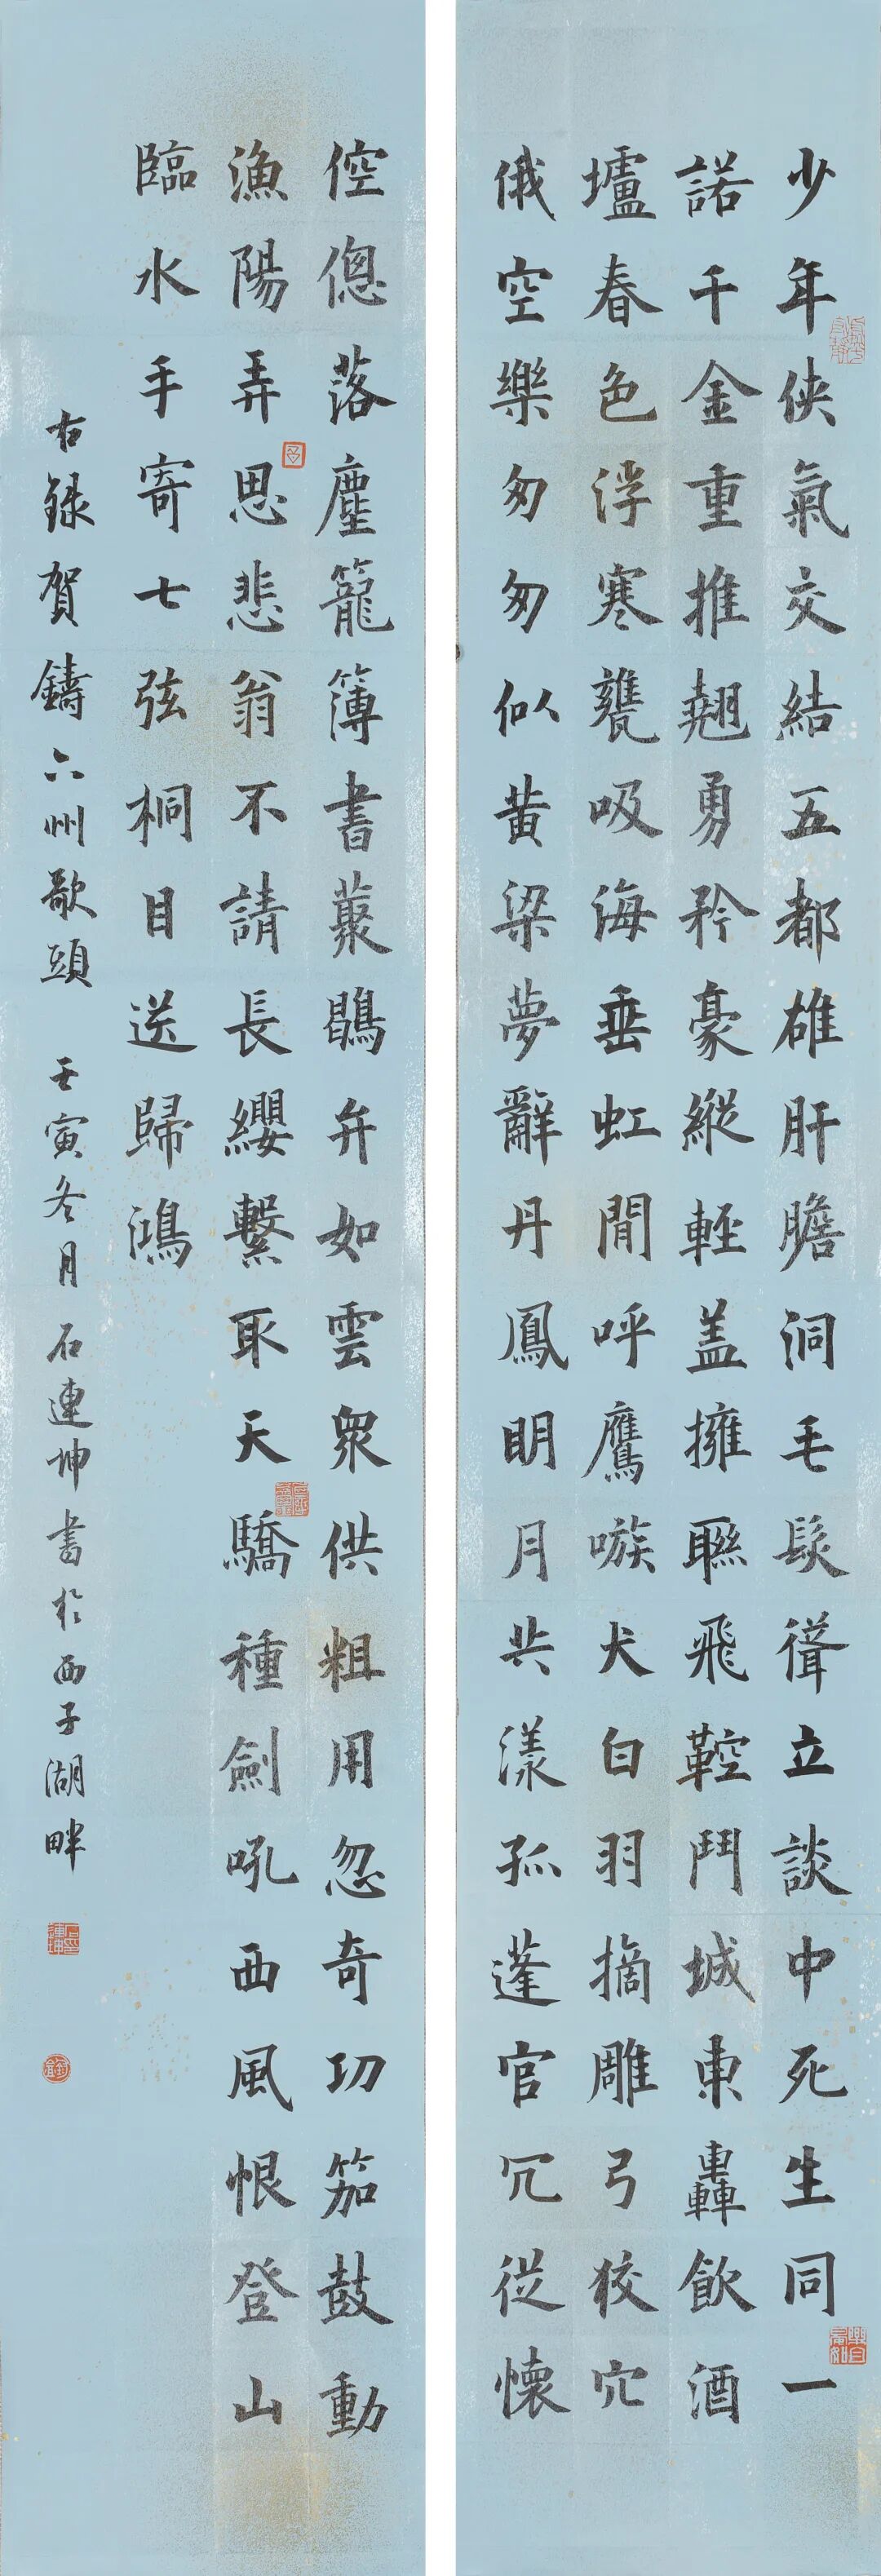 少年俠氣交結五都雄肝膽洞毛髮聳立談中死生同一
諾千金重推翹勇矜豪縱輕蓋擁聯飛鞚鬥城東轟飲酒
壚春色浮寒甕吸海垂虹閒呼鷹嗾犬白羽摘雕弓狡穴
俄空樂匆匆似黃粱夢辭丹鳳明月共漾孤蓬官冗從懷
倥傯落塵籠簿書叢鶡弁如雲眾供粗用忽奇功笳鼓動
漁陽弄思悲翁不請長纓繫取天驕種劍吼西風恨登山
臨水手寄七弦桐目送歸鴻
右錄賀鑄六州歌頭 壬寅冬月石連坤書於西子湖畔